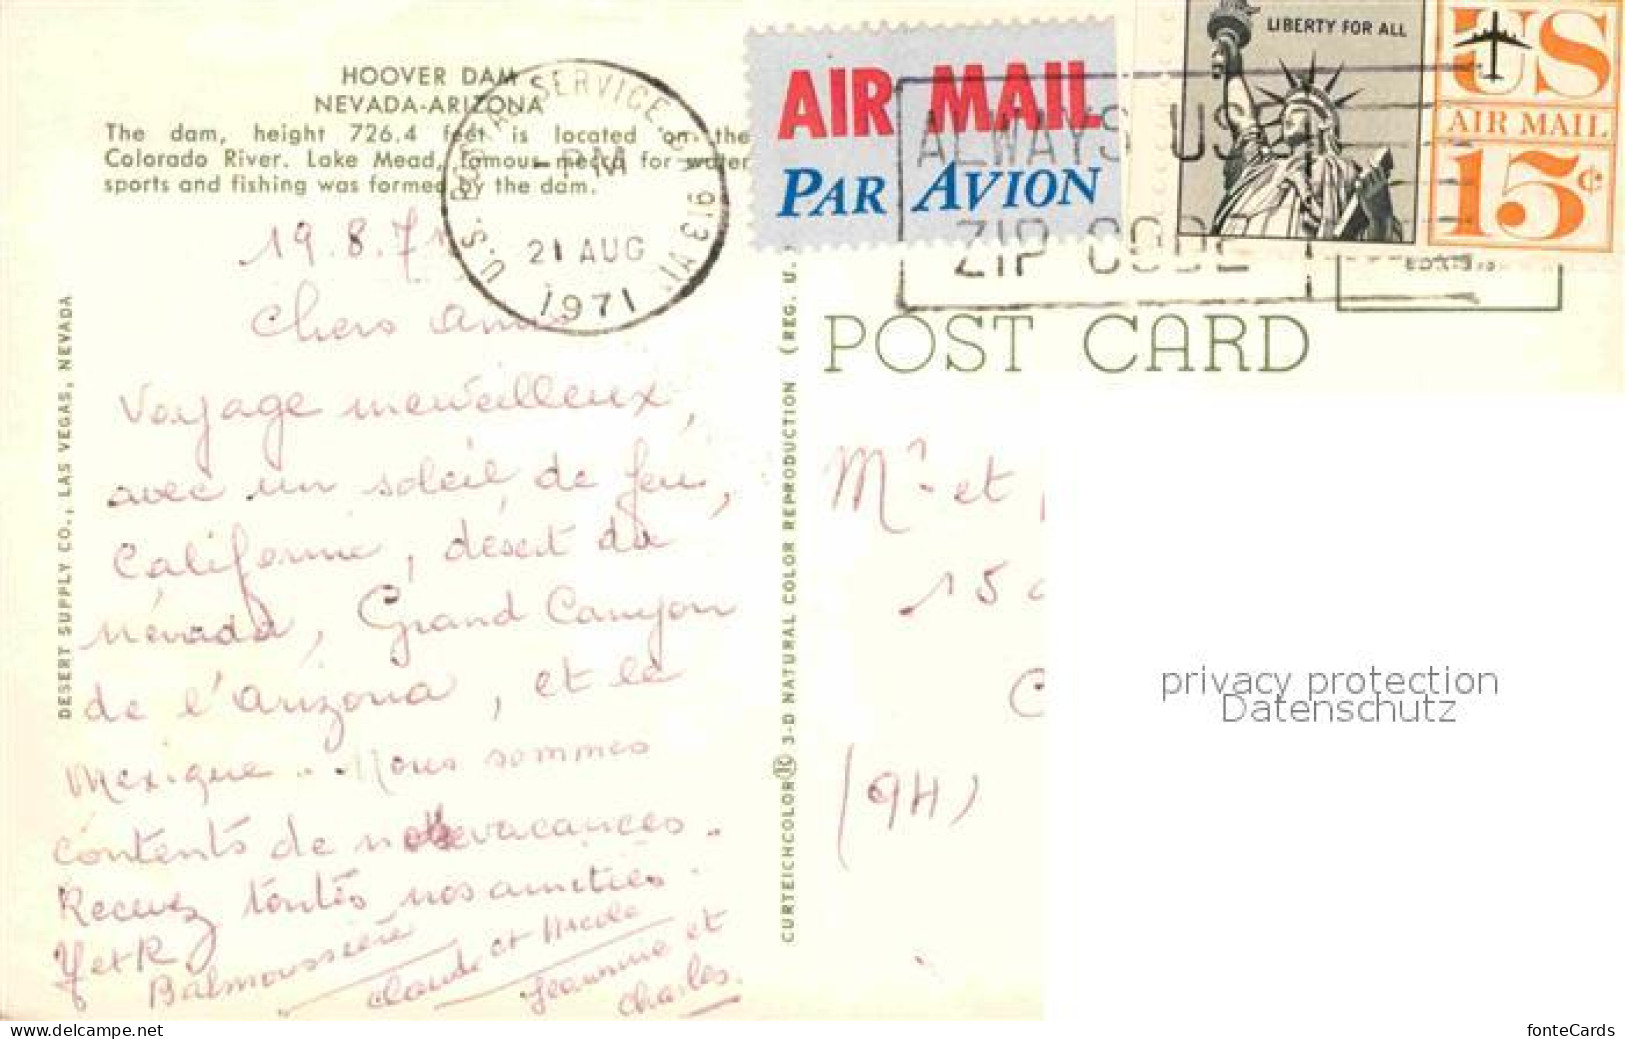 HOOVER DAM
NEVADA-ARIZONA
The dam, height 726.4 feet is located on the
Colorado River. Lake Mead, famous mecca for water
sports and fishing was formed by the dam.
U.S. POSTAL SERVICE
PM
21 AUG
1971
AIR MAIL
PAR AVION
ALWAYS USE
ZIP CODE
LIBERTY FOR ALL
US
AIR MAIL
15¢
POST CARD
DESERT SUPPLY CO., LAS VEGAS, NEVADA
CURTEICHCOLOR® 3-D NATURAL COLOR REPRODUCTION (REG. U.
19.8.71
Chers amis
Voyage merveilleux,
avec un soleil de feu,
Californie, désert du
Névada, Grand Canyon
de l'Arizona, et le
Mexique. Nous sommes
contents de nos vacances.
Recevez toutes nos amitiés.
Y et R. Balmoussière
Claude et Nicole
Jeannine et
Charles.
Mr et
15
C
(94)
privacy protection
Datenschutz
www.delcampe.net
fonteCards